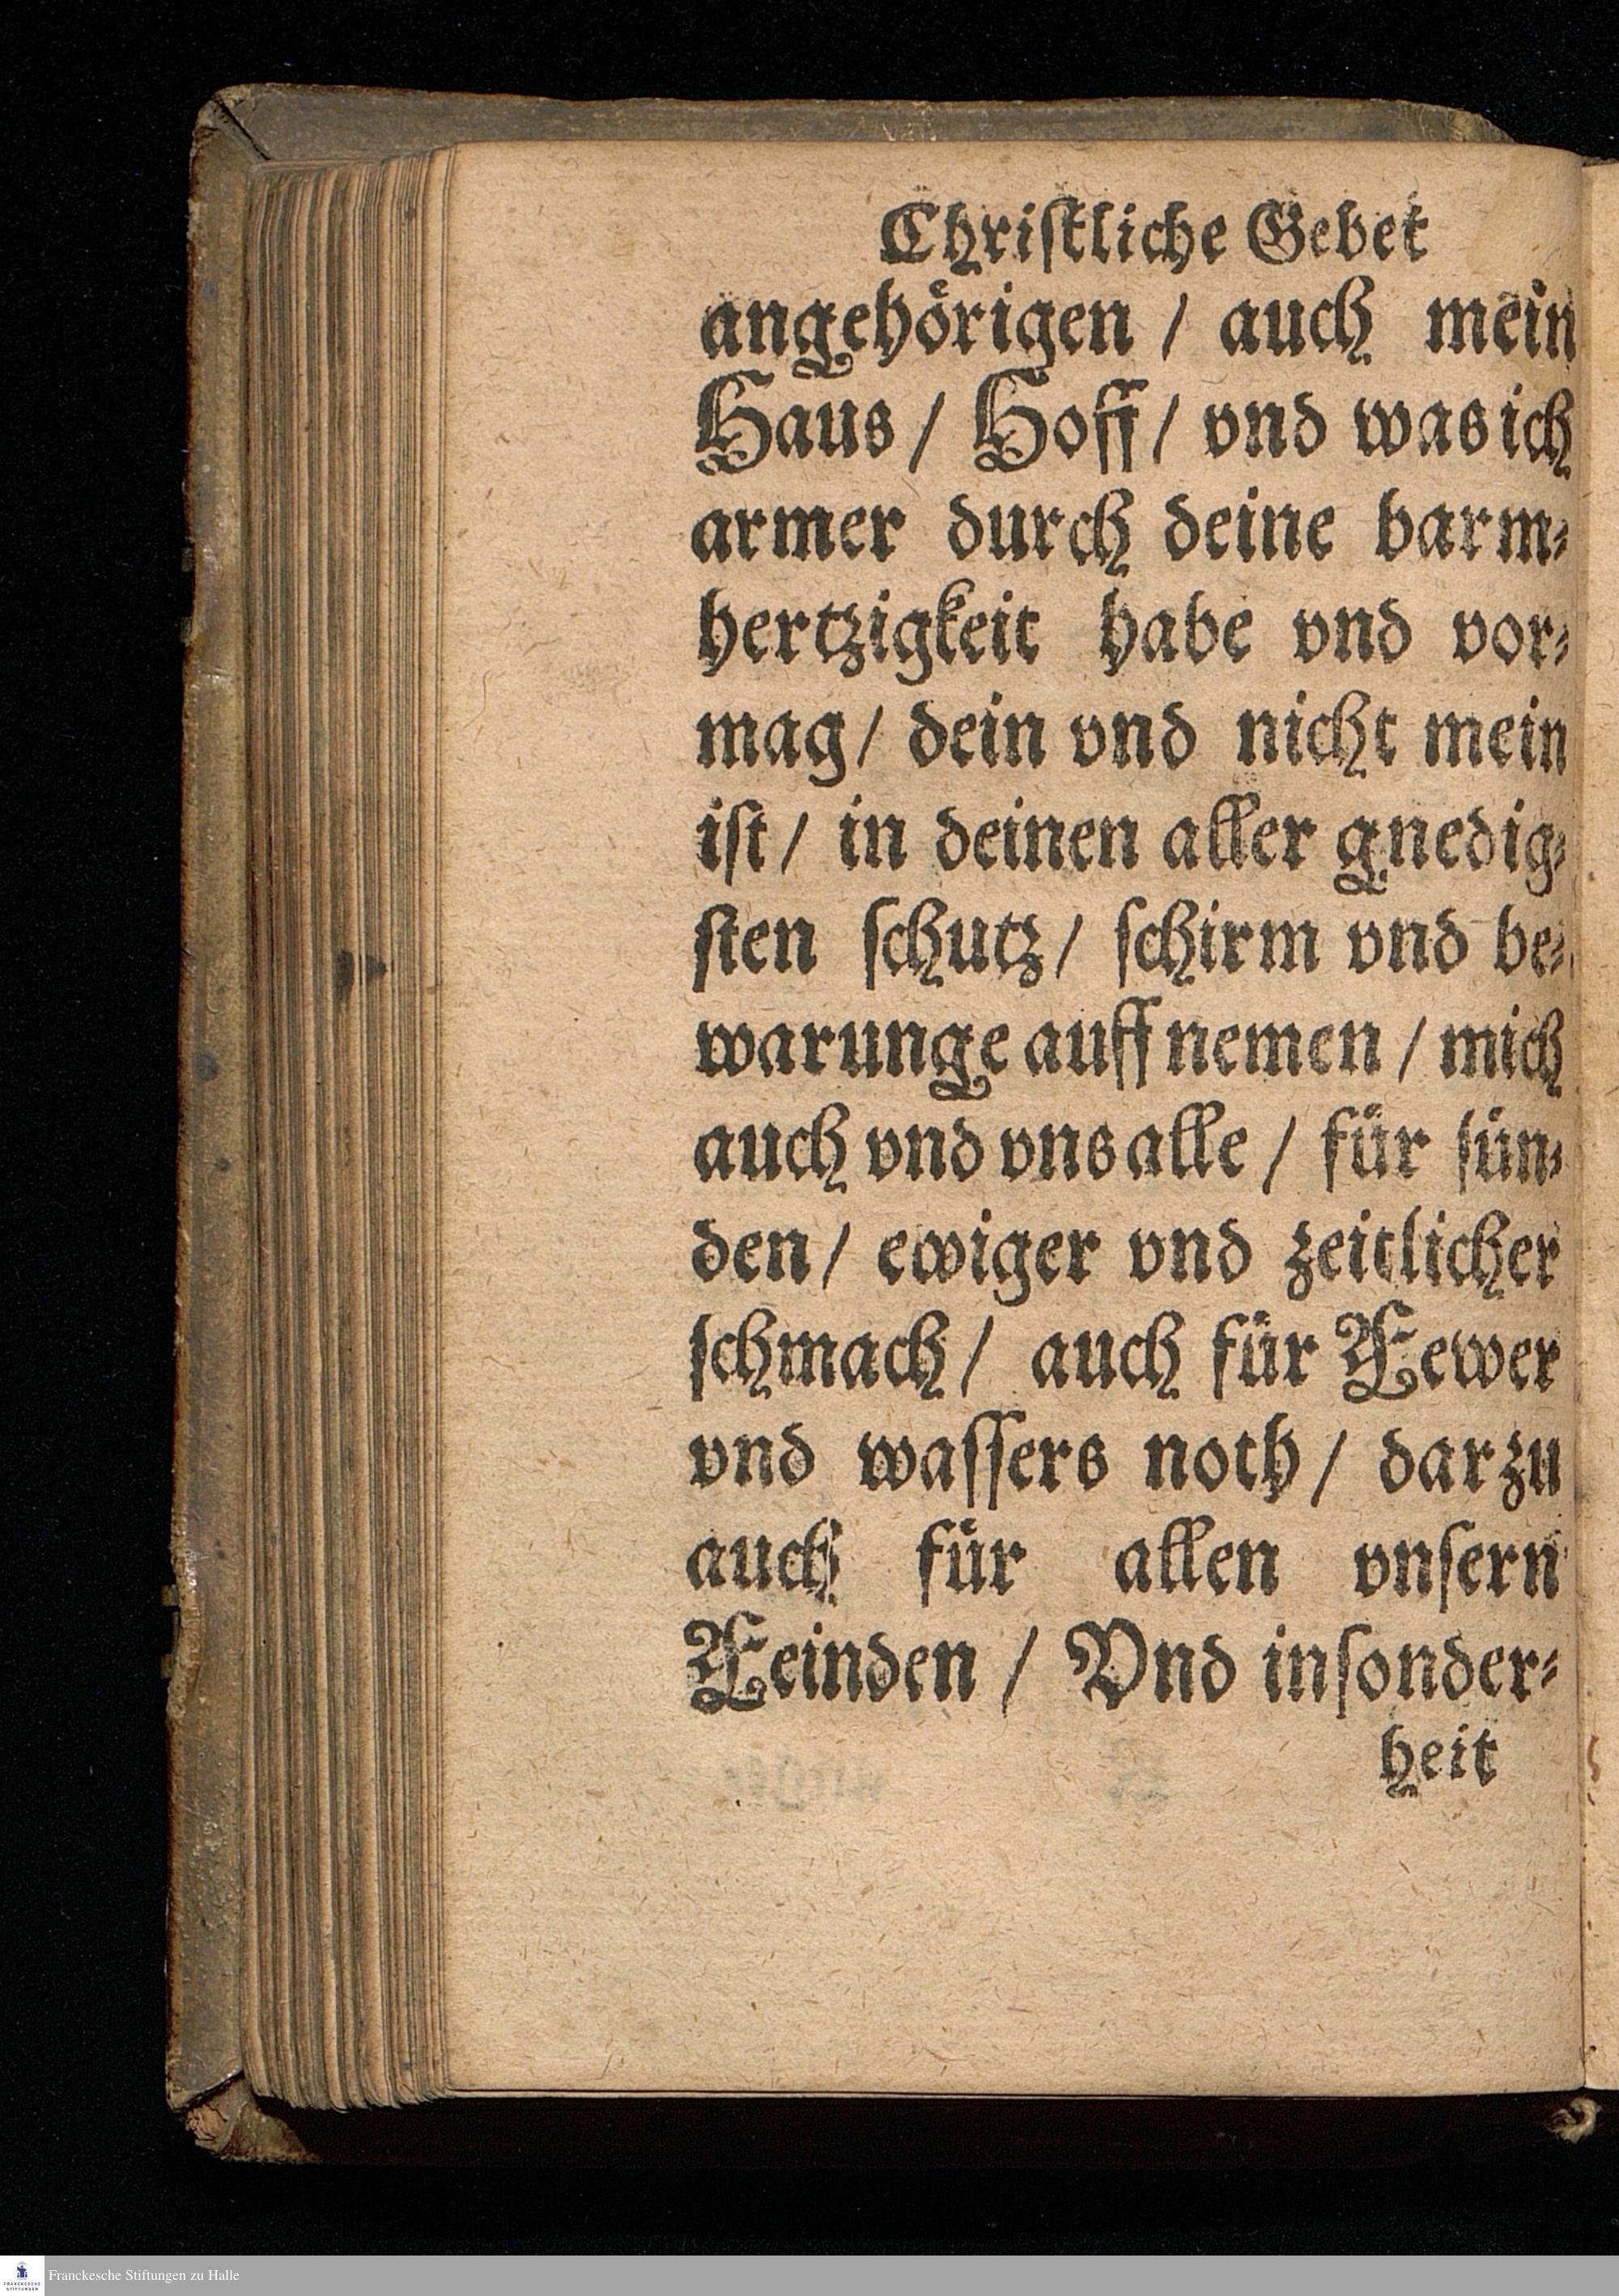 Chriſtliche Gebet
angehörigen / auch mein
Haus / Hoff / vnd was ich
armer durch deine barm⸗
hertzigkeit habe vnd vor⸗
mag / dein vnd nicht mein
iſt / in deinen aller gnedig⸗
ſten ſchutz / ſchirm vnd be⸗
warunge auff nemen / mich
auch vnd vns alle / für ſün⸗
den / ewiger vnd zeitlicher
ſchmach / auch für Fewer
vnd waſſers noth / dar zu
auch für allen vnſern
Feinden / Vnd inſonder⸗
heit
FRANCKESCHE STIFTUNGEN
Franckesche Stiftungen zu Halle